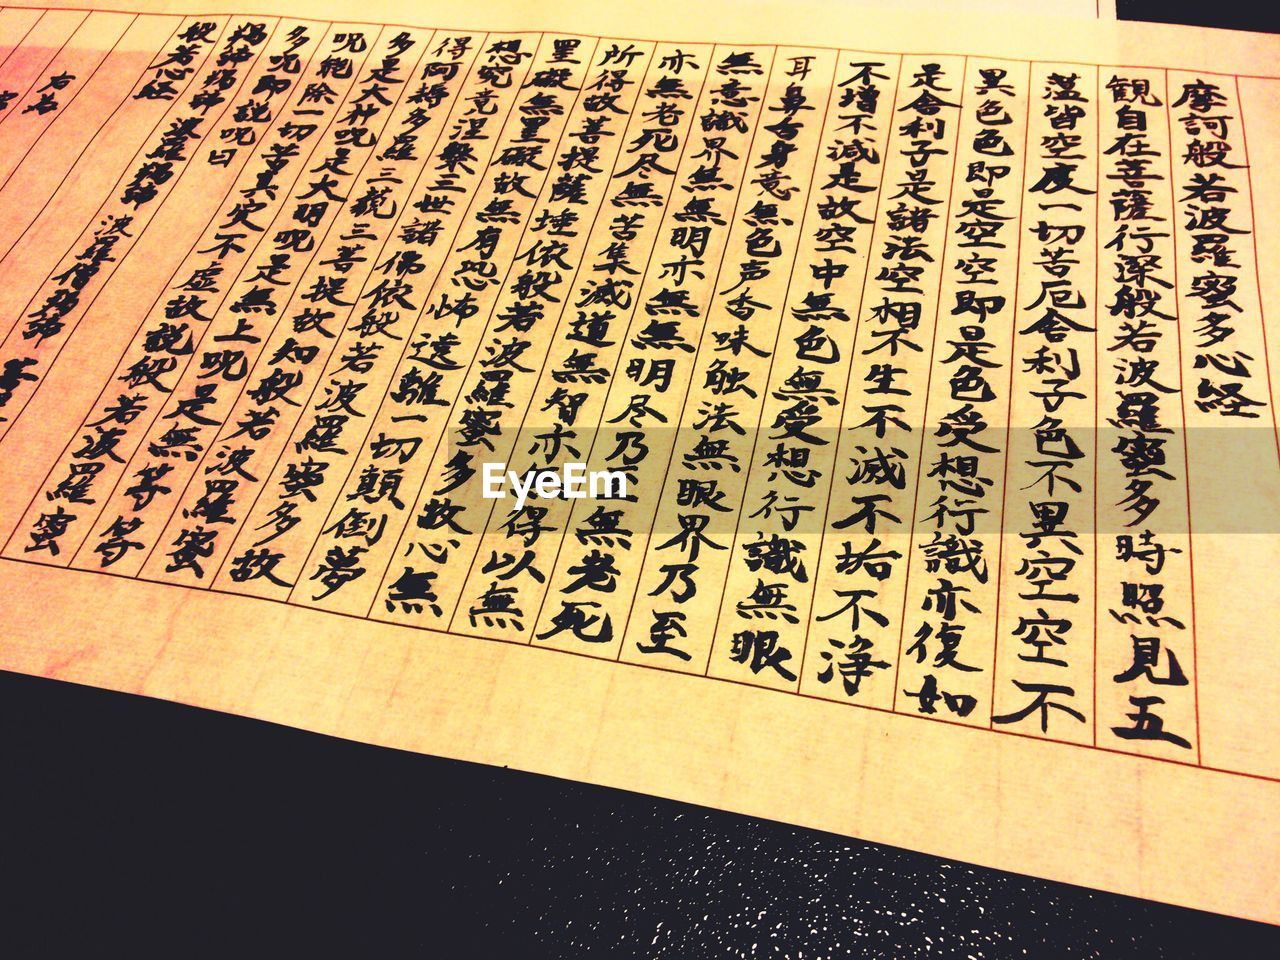 摩訶般若波羅蜜多心経
観自在菩薩行深般若波羅蜜多時照見五
蘊皆空度一切苦厄舎利子色不異空空不
異色色即是空空即是色受想行識亦復如
是舎利子是諸法空相不生不滅不垢不浄
不増不減是故空中無色無受想行識無眼
耳鼻舌身意無色声香味触法無眼界乃至
無意識界無無明亦無無明尽乃至無老死
亦無老死尽無苦集滅道無智亦無得以無
所得故菩提薩埵依般若波羅蜜多故心無
罣礙無罣礙故無有恐怖遠離一切顛倒夢
想究竟涅槃三世諸佛依般若波羅蜜多故
得阿耨多羅三藐三菩提故知般若波羅蜜
多是大神呪是大明呪是無上呪是無等等
呪能除一切苦真実不虚故説般若波羅蜜
多呪即説呪曰
羯諦羯諦 波羅羯諦 波羅僧羯諦
般若心経
EyeEm